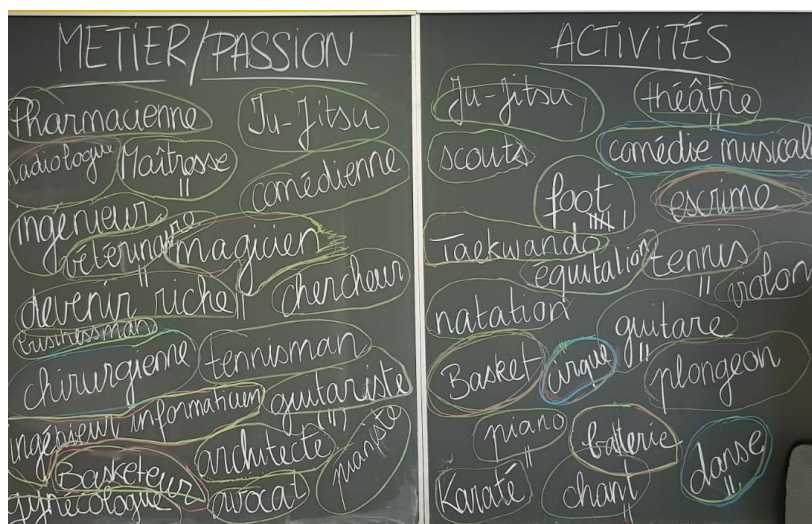 METIER/PASSION
Pharmacienne Ju-Jitsu
radiologue Maîtresse
comédienne
ingénieur
vétérinaire magicien
devenir riche chercheur
businessman
chirurgienne tennisman
ingénieur informaticien guitariste
Basketeur architecte pianiste
gynécologue avocat
ACTIVITÉS
Ju-Jitsu théâtre
scouts comédie musicale
foot escrime
Taekwando equitation tennis violon
natation guitare
Basket cirque plongeon
piano batterie danse
Karaté chant